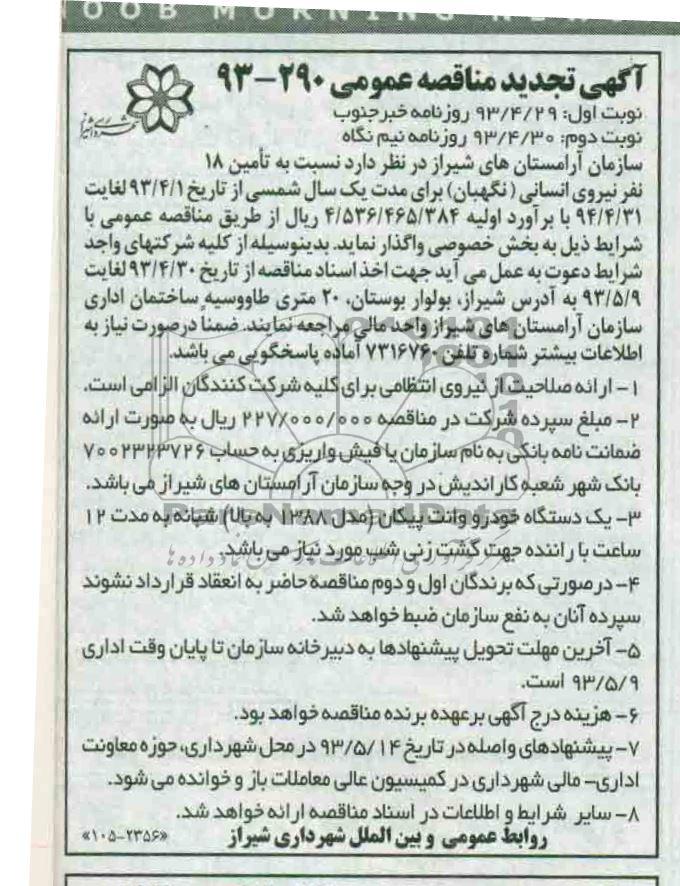 OOB MORNING NEWS
آگهی تجدید مناقصه عمومی ۲۹۰-۹۳
نوبت اول: ۹۳/۴/۲۹ روزنامه خبرجنوب
نوبت دوم: ۹۳/۴/۳۰ روزنامه نیم نگاه
سازمان آرامستان های شیراز در نظر دارد نسبت به تأمین ۱۸
نفر نیروی انسانی (نگهبان) برای مدت یک سال شمسی از تاریخ ۹۳/۴/۱ لغایت
۹۴/۴/۳۱ با برآورد اولیه ۴/۵۳۶/۴۶۵/۳۸۴ ریال از طریق مناقصه عمومی با
شرایط ذیل به بخش خصوصی واگذار نماید. بدینوسیله از کلیه شرکتهای واجد
شرایط دعوت به عمل می آید جهت اخذ اسناد مناقصه از تاریخ ۹۳/۴/۳۰ لغایت
۹۳/۵/۹ به آدرس شیراز، بولوار بوستان، ۲۰ متری طاووسیه ساختمان اداری
سازمان آرامستان های شیراز واحد مالی مراجعه نمایند. ضمنا درصورت نیاز به
اطلاعات بیشتر شماره تلفن ۷۳۱۶۷۶۰ آماده پاسخگویی می باشد.
۱- ارائه صلاحیت از نیروی انتظامی برای کلیه شرکت کنندگان الزامی است.
۲- مبلغ سپرده شرکت در مناقصه ۲۲۷/۰۰۰/۰۰۰ ریال به صورت ارائه
ضمانت نامه بانکی به نام سازمان یا فیش واریزی به حساب ۷۰۰۲۳۲۳۷۲۶
بانک شهر شعبه کاراندیش در وجه سازمان آرامستان های شیراز می باشد.
۳- یک دستگاه خودرو وانت پیکان (مدل ۱۳۸۸ به بالا) شبانه به مدت ۱۲
ساعت با راننده جهت گشت زنی شب مورد نیاز می باشد.
۴- درصورتی که برندگان اول و دوم مناقصه حاضر به انعقاد قرارداد نشوند
سپرده آنان به نفع سازمان ضبط خواهد شد.
۵- آخرین مهلت تحویل پیشنهادها به دبیرخانه سازمان تا پایان وقت اداری
۹۳/۵/۹ است.
۶- هزینه درج آگهی برعهده برنده مناقصه خواهد بود.
۷- پیشنهادهای واصله در تاریخ ۹۳/۵/۱۴ در محل شهرداری، حوزه معاونت
اداری- مالی شهرداری در کمیسیون عالی معاملات باز و خوانده می شود.
۸- سایر شرایط و اطلاعات در اسناد مناقصه ارائه خواهد شد.
روابط عمومی و بین الملل شهرداری شیراز
«۱۰۵-۲۳۵۶»